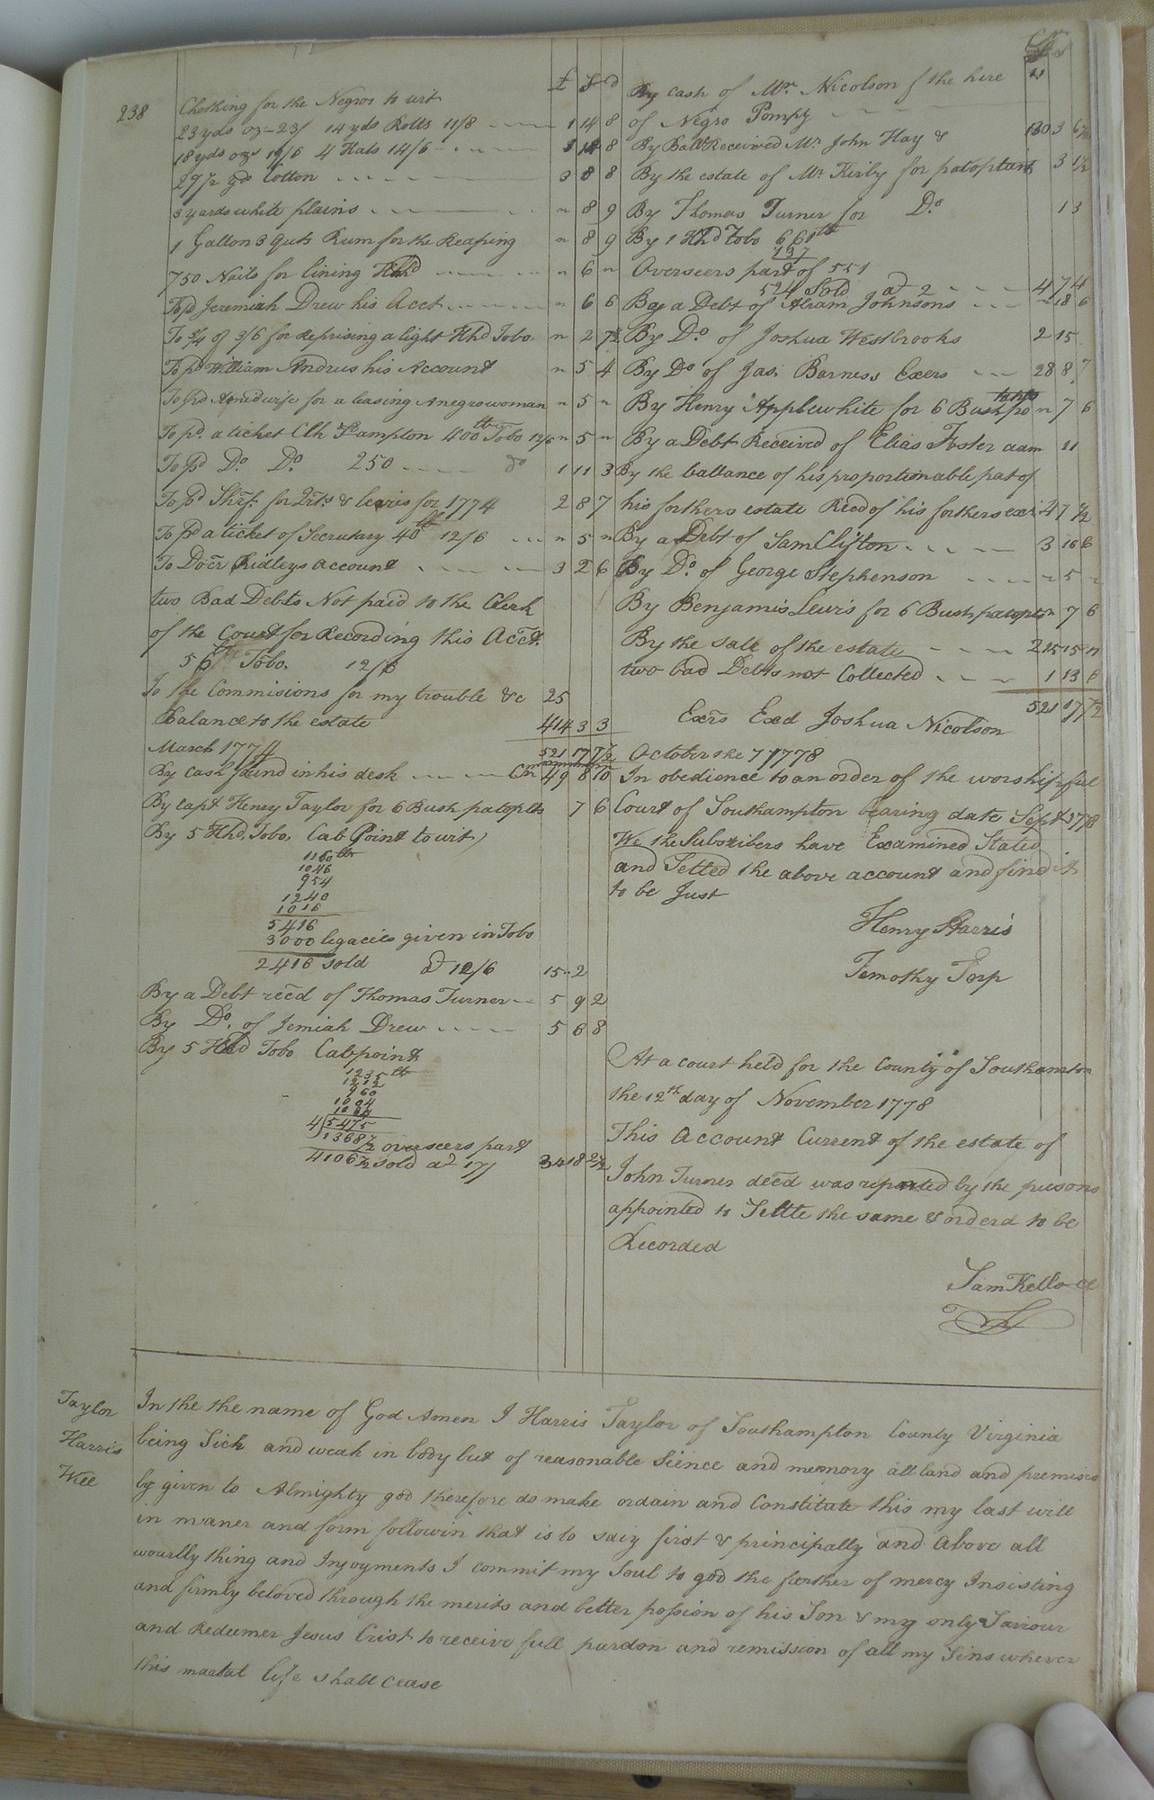 238
£ S d
Clothing for the Negros to wit
23 yds oz - 23/ 14 yds Rolls 11/8 1 14 8
18 yds ozs 19/6 4 Hats 14/6 1 14 8
27 1/2 yds Cotton 3 8 8
3 yards white plains " 8 9
1 Gallon 3 quts Rum for the Reaping " 8 9
750 Nails for lining Hhd " 6 "
To pd Jeremiah Drew his Acct " 6 6
To 3/4 of 3/6 for Reprising a light Hhd Tobo. " 2 7 1/2
To pd William Andrus his Account " 5 4
To pd A midwife for a leasing a negrowoman " 5 "
To pd. a ticket Clk Hampton 40 lb Tobo 12/6 " 5 "
To pd Do Do 250 do 1 11 3
To pd Shrf. for Qrts & levies for 1774 2 8 7
To pd a ticket of Secrutary 40 lb 12/6 " 5 "
To Docr Ridleys account 3 2 6
two Bad Debts Not paid to the Clerk
of the Court for Recording this Acct.
56 Tobo. 12/6
To the Commisions for my trouble &c 25
Balance to the estate 414 3 3
521 17 7 1/2
March 1774
By Cash found in his desk Cr 49 8 10
By capt Henry Taylor for 6 Bush patoptos 7 6
By 5 Hhd. Tobo. Cab Point to wit,
1160 lb
1046
954
1240
1016
5416
3000 legacies given in Tobo
2416 sold at 12/6 15 - 2
By a Debt recd of Thomas Turner 5 9 2
By Do. of Jemiah Drew 5 6 8
By 5 Hhd Tobo Cabpoint
1235 lb
1212
960
1004
4 5475
1368 1/2 overseers part
4106 1/2 sold at 17/ 34 18 2 1/2
By cash of Mr. Nicolson f the hire
of Negro Pompy
By Balle Received Mr. John Hay & 130 3 6 1/2
By the estate of Mr. Kirby for patoptais 3 1 1/2
By Thomas Turner for Do 13
By 1 Hhd Tobo 661 lb
Overseers part of 551
524 Sold at 2 4 7 4
By a Debt of Abram Johnsons 18 6
By Do of Joshua Westbrooks 2 15
By Do of Jas. Barness Exers 28 8 7
By Henry Applewhite for 6 Bush po " 7 6
By a Debt Received of Elias Foster aam 11
By the ballance of his proportionable pat of
his forthers estate Recd of his forthers exer 47 1/2
By a Debt of Sam Clifton 3 16 6
By Do. of George Stephenson - 5 -
By Benjamis Lewis for 6 Bush patoptos 7 6
By the Sale of the estate 215 15 11
two bad Debts not Collected 1 13 6
521 17 7 1/2
Exrs Exd Joshua Nicolson
October the 7 1778
In obedience to an order of the worshipful
Court of Southampton bearing date Sept 1778
We the Subscribers have Examined Stated
and Setled the above account and find it
to be Just
Henry Harris
Temothy Torp
At a court held for the County of Southamton
the 12th day of November 1778
This Account Current of the estate of
John Turner decd was reported by the persons
appointed to Settle the same & orderd to be
Recorded
Sam Kello Cl
Taylor
Harris
Wee
In the the name of God Amen I Harris Taylor of Southampton County Virginia
being Sick and weak in body but of reasonable Sience and memory all land and premises
by given to Almighty god therefore do make ordain and Constitate this my last will
in maner and form followin that is to say first & principally and above all
wourlly thing and Injoyments I commit my Soul to god the farther of mercy Insisting
and firmly beloved through the merits and better possion of his Son & my only Saviour
and Redeemer Jesus Crist to receive full pardon and remission of all my Sins wherever
this maatal life shall cease